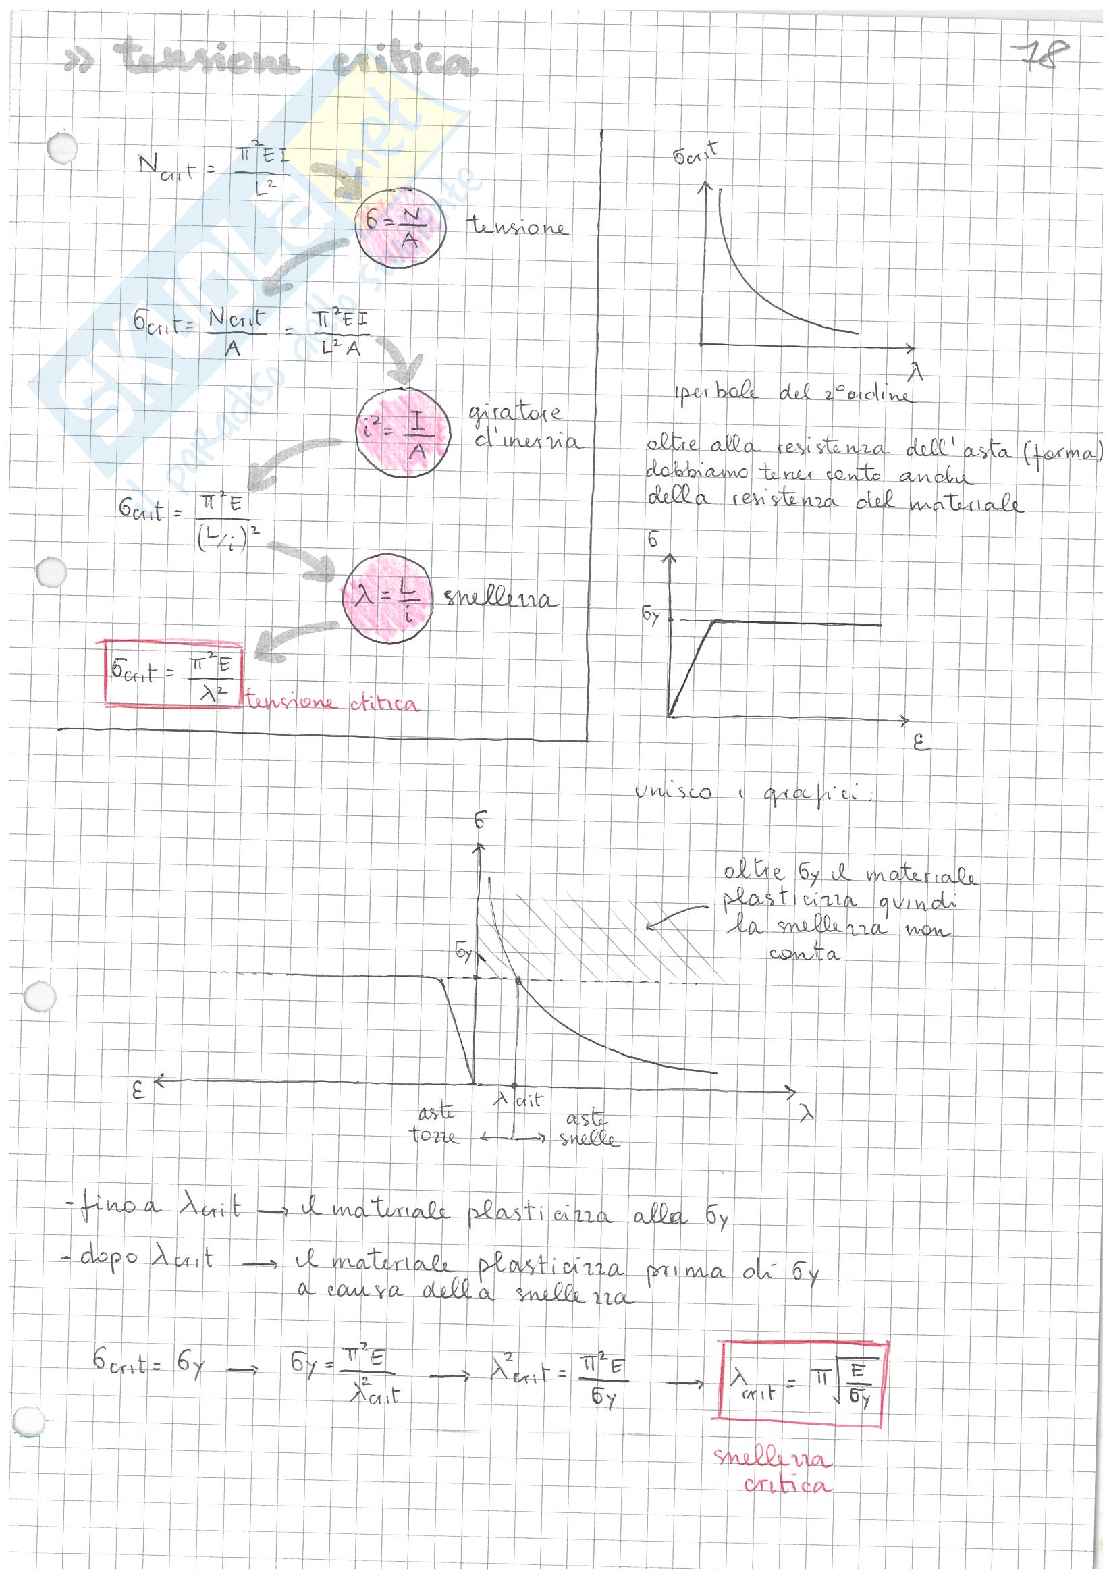 >> tensione critica
18
Ncrit = π²EI / L²
σ = N / A tensione
σcrit = Ncrit / A = π²EI / L²A
i² = I / A giratore
d'inerzia
σcrit = π²E / (L/i)²
λ = L / i snellezza
σcrit = π²E / λ²
tensione critica
σcrit
λ
iperbole del 2° ordine
oltre alla resistenza dell'asta (forma)
dobbiamo tener conto anche
della resistenza del materiale
σ
σy
ε
unisco i grafici:
σ
oltre σy il materiale
plasticizza quindi
la snellezza non
conta
σy
ε
λcrit
λ
aste
tozze
aste
snelle
- fino a λcrit → il materiale plasticizza alla σy
- dopo λcrit → il materiale plasticizza prima di σy
a causa della snellezza
σcrit = σy → σy = π²E / λ²crit → λ²crit = π²E / σy → λcrit = π√(E / σy)
snellezza
critica